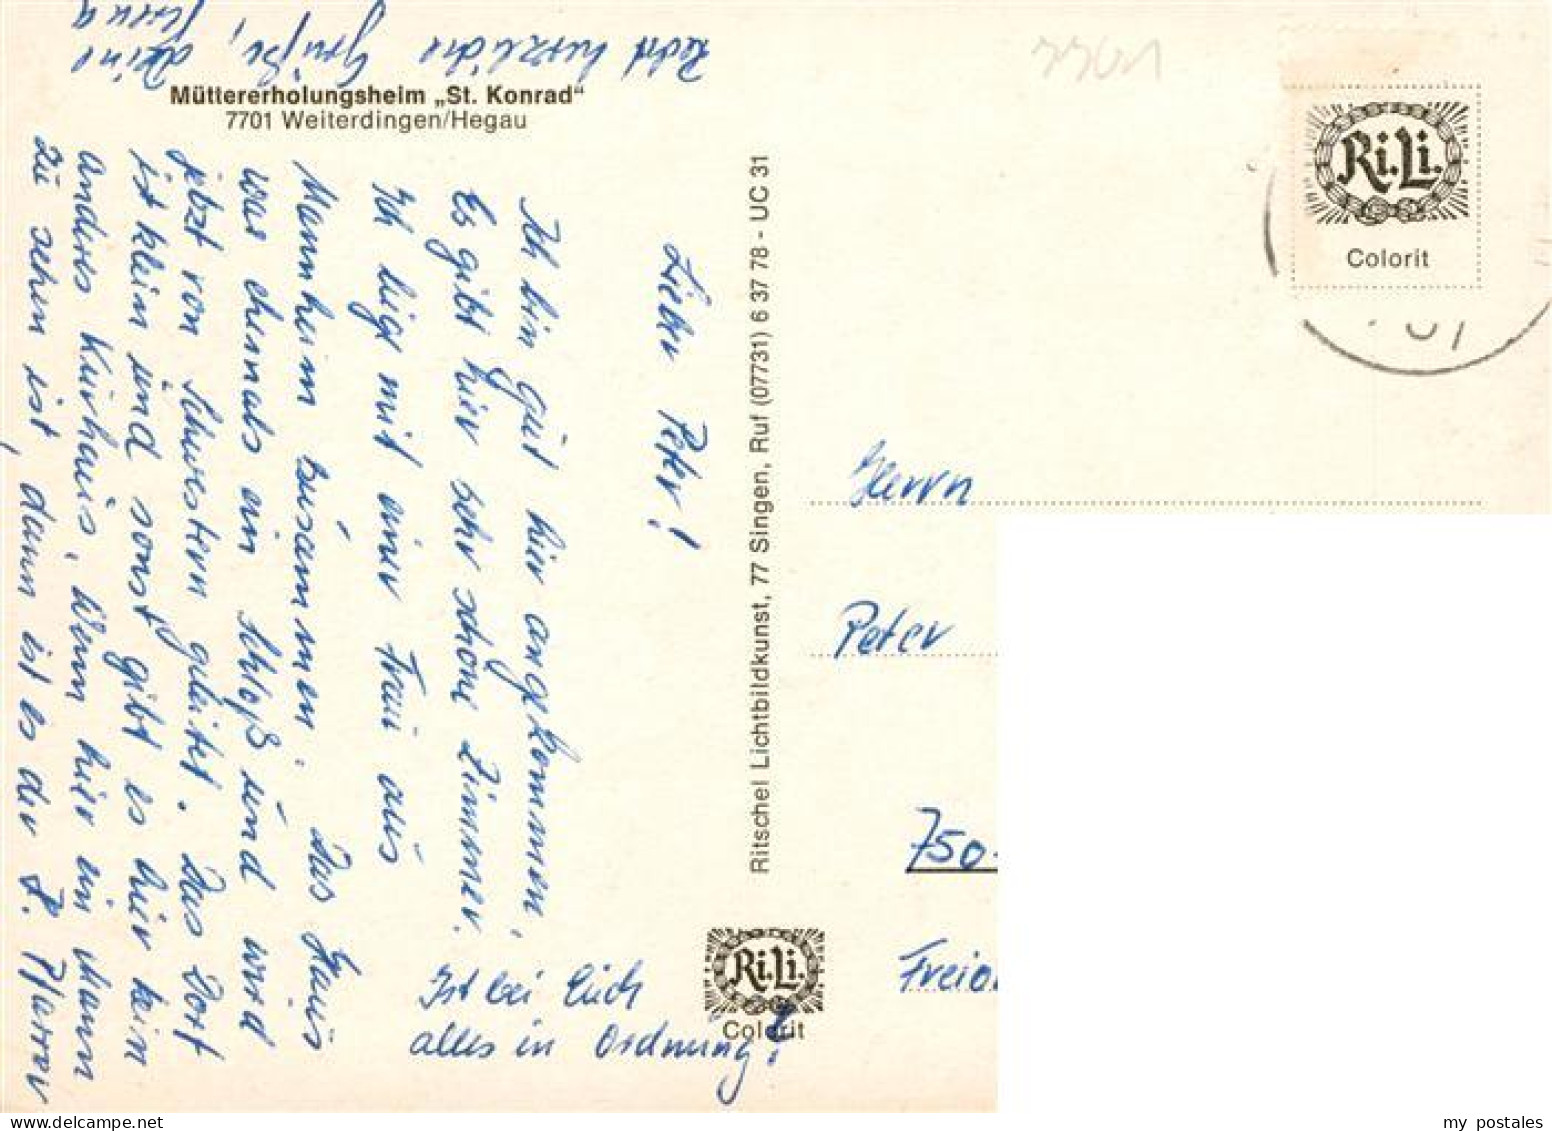 Müttererholungsheim „St. Konrad“
7701 Weiterdingen/Hegau
Lieber Peter!
Ich bin gut hier angekommen,
Es gibt hier sehr schöne Zimmer.
Ich liege mit einer Frau aus
Mannheim zusammen. Das Haus
war ehemals ein Schloß und wird
jetzt von Schwestern geleitet. Das Dorf
ist klein und sonst gibt es hier kein
anderes Kurhaus, Wenn hier ein Mann
zu sehen ist, dann ist es der H. Pfarrer
Recht herzliche Grüße, Deine
Ist bei Euch
alles in Ordnung?
Ritschel Lichtbildkunst, 77 Singen, Ruf (07731) 6 37 78 - UC 31
Ri.Li.
Colorit
7701
Ri.Li.
Colorit
Herrn
Peter
750
my postales